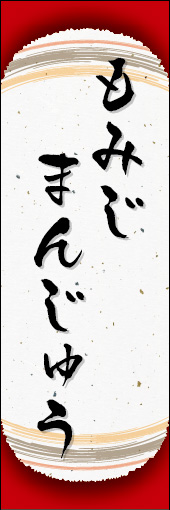 もみじ
まんじゅう